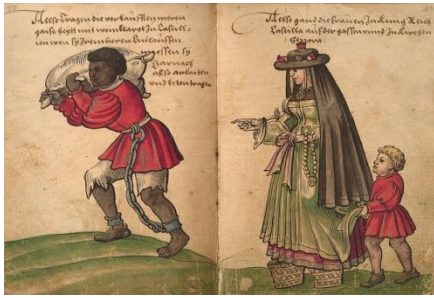 Allso Tragen die verkaufften moren
mit wein In Castill-
en wen sy Irem herren Entlauffen
miessen sy
darnach
also arbaiten
und keten tragen
Also gand die frauen In kung Reich
Castilia auf der gassen und In kirchen